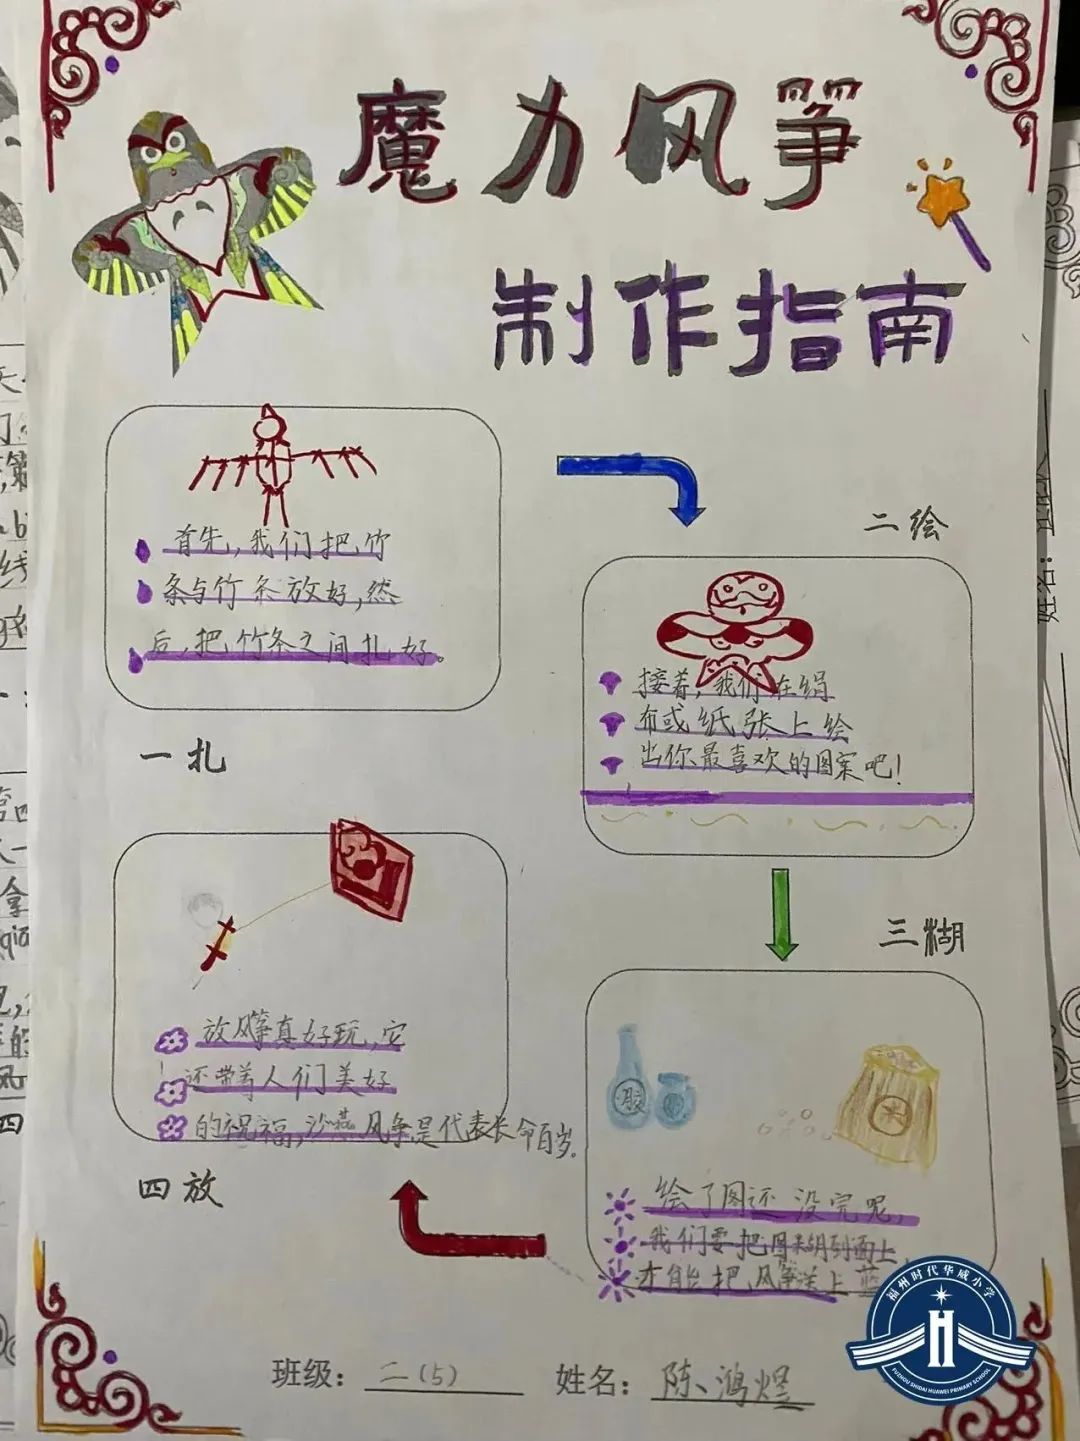 魔力风筝
制作指南
首先,我们把竹
条与竹条放好,然
后,把竹条之间扎好。
一扎
二绘
接着,我们在绢
布或纸张上绘
出你最喜欢的图案吧!
三糊
胶
米
绘了图还没完呢,
我们要把图糊到面上
才能把风筝送上蓝
放风筝真好玩,它
还带着人们美好
的祝福,沙燕风筝是代表长命百岁。
四放
班级: 二(5)
姓名: 陈鸿煜
福州时代华威小学
FUZHOU SHIDAI HUAWEI PRIMARY SCHOOL
姓名: